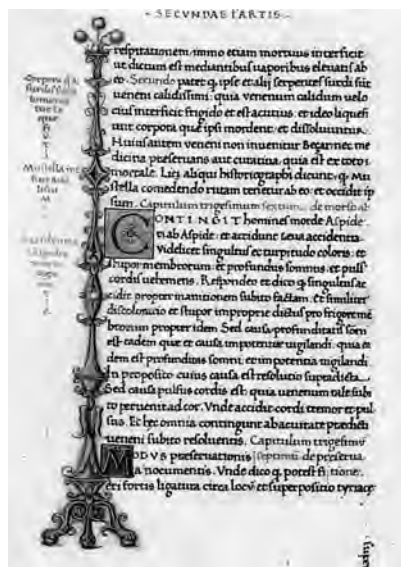 SECVNDAS PARTIS
respirationem, immo etiam mortuus interficit
ut dictum est mediantibus uaporibus eleuatis ab
eo. Secundo patet q, ipse et alij serpentes surdi sūt
ueneni calidissimi: quia venenum calidum uelo
cius interficit frigido et est acutius. et ideo liquefi
unt corpora que ipsi mordent: et dissoluuntur.
Huius autem veneni non inuenitur Beçar: nec me
dicina preseruans aut curatiua. quia est ex toto i
mortale. Licz aliqui historiographi dicunt, q Mu
stella comedendo rutam tenetur ab eo: et occidit ip
sum. Capitulum trigesimum sextum. de morsu ab
CONTINGIT homines morde Aspide
ti ab Aspide: et accidunt accidentia
Videlicet singultus et turpitudo coloris: et
stupor membrorum et profundus somnus. et puls
cordis uehemens. Respondeo et dico q singultus ac
cidit propter inanitionem subito factam. Et similiter
discoloratio et stupor improprie dictus pro frigore mē
brorum propter idem. Sed causa profunditatis som
est eadem que et causa impotentie uigilandi. quia ea
dem est profunditas somni. et impotentia uigilandi
In proposito cuius causa est resolutio supradicta.
Sed causa pulsus cordis est: quia uenenum tale subi
to peruenit ad cor. Vnde accidit cordi tremor et pul
sus. Et hec omnia contingunt ab acuitate predicti
ueneni subito resoluentis. Capitulum trigesimū
MODVS preseruationis septimū de preserua
a nocumentis. Vnde dico q, potest fi tione.
eri fortis ligatura circa locū et superpositio tyriace
Mustella